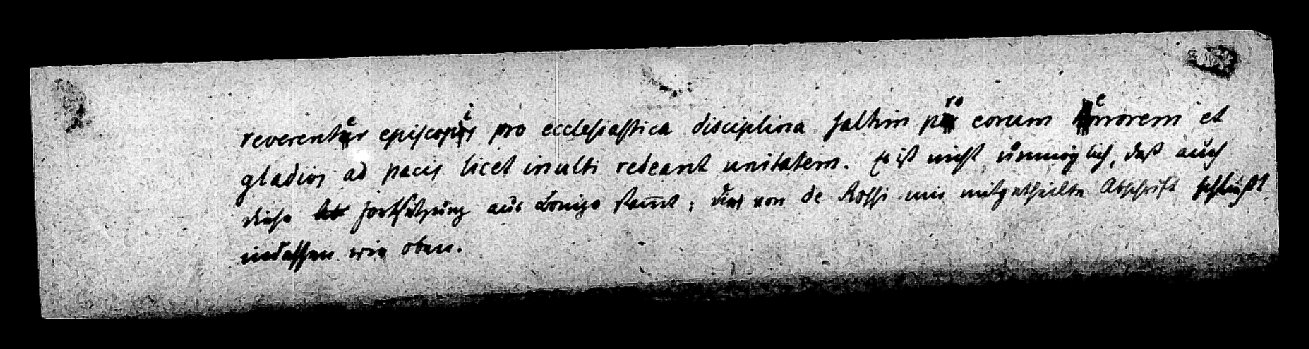 reverenter episcopis pro ecclesiastica disciplina saltim pro eorum errorem et
gladios ad pacis licet inulti redeant unitatem. Es ist nicht unmöglich, daß auch
diese Fortsetzung aus Bonizo stammt; die von de Rossi mir mitgetheilte Abschrift schließt
indessen wie oben.